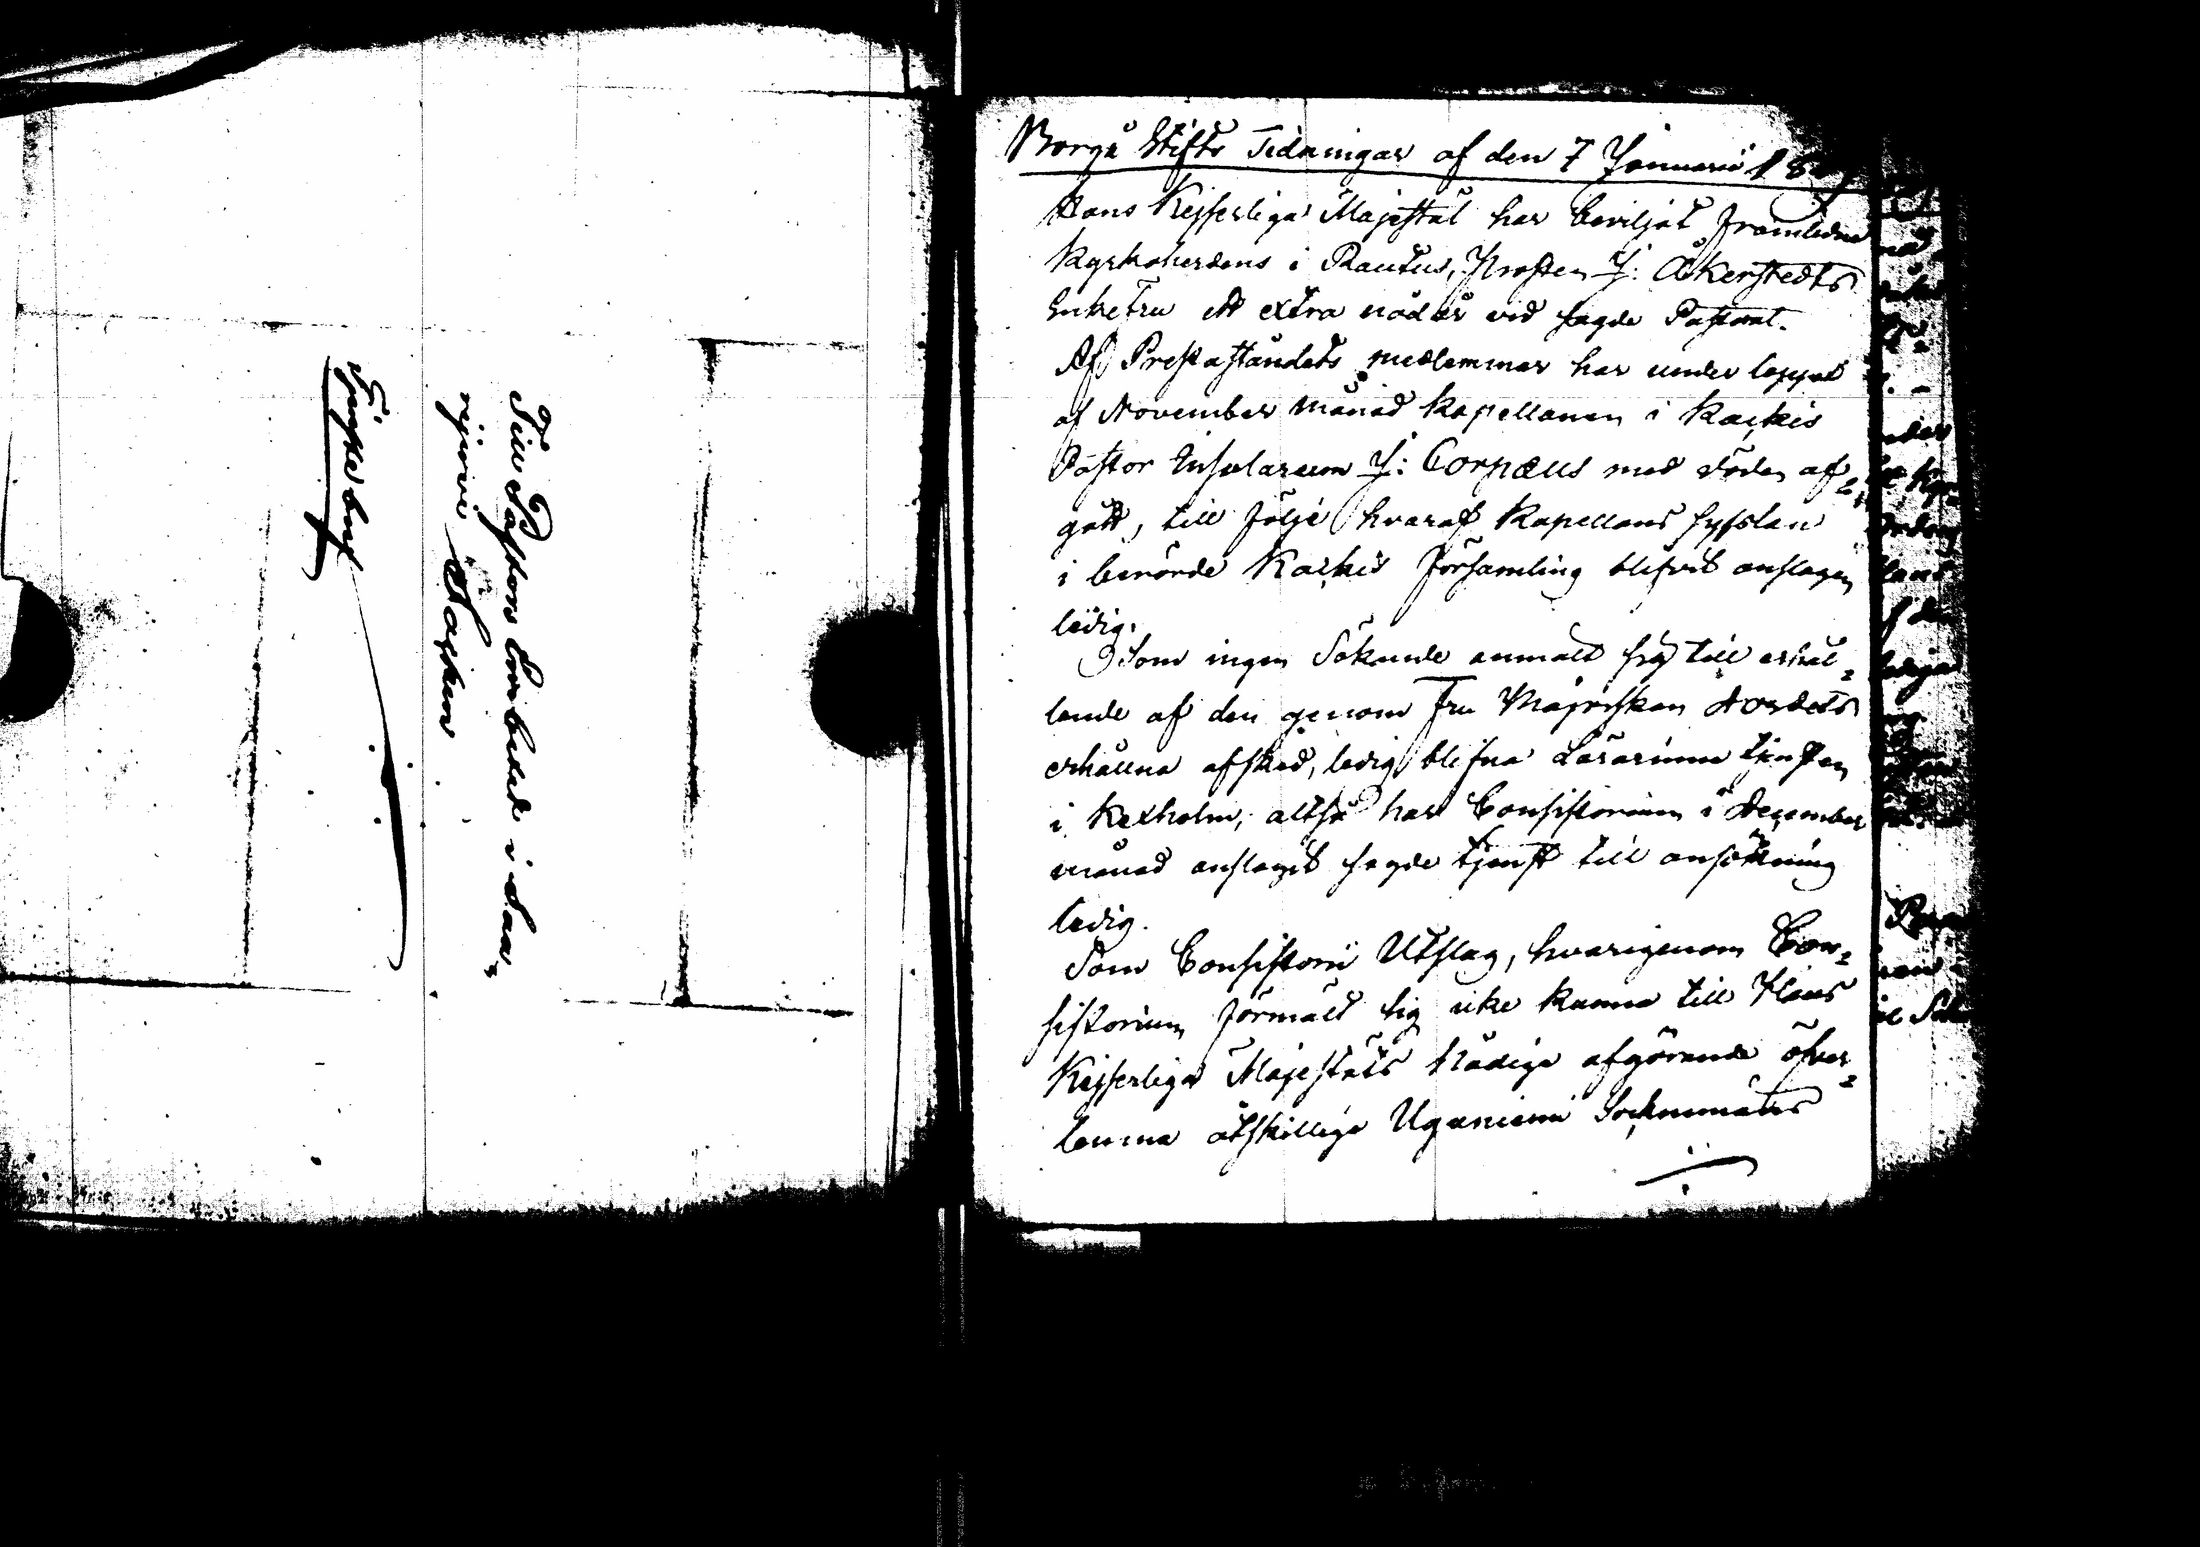 Till Pastors Embetet i Saa„
rijervi Sochen
Tjenstebref
Borgå Stifts Tidningar af den 7 Januarii 18
Hans Kejserliga Majestät har beviljat framledne
Kyrkoherdens i Rautus, Prosten J: Åkerstedts
Enkefru ett extra nådår vid sagde Pastorat.
Af Prestaståndets medlemmar har under loppet
af November månad Kapellanen i Kackis
Pastor Insularum J: Corpæus med döden af-
gått, till följe hvaraf Kapellans sysslan
i berörde Kackis Församling blifvit anslagen
ledig.
Som ingen Sökande anmält sig till erhål-
lande af den genom Fru Majorskan
erhållna afsked, ledig blifna Lärarinne tjensten
i Kexholm; altså har Consistorium i December
månad anslagit sagde tjenst till ansökning
ledig.
Som Consistorii Utslag, hvarigenom Con-
sistorium förmält sig icke kunna till Hans
Kejserliga Majestäts Nådiga afgörande öfver-
lemna åtskillige Uguniemi Socknemäns